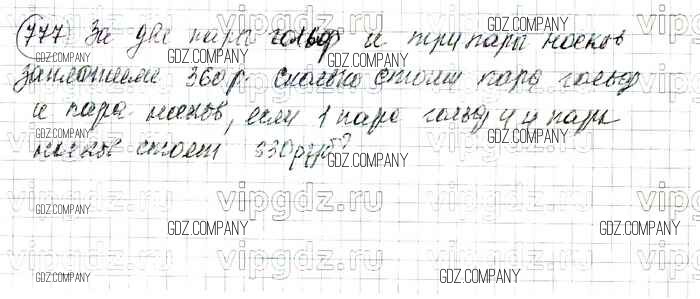 777 За две пары гольф и три пары носков
заплатили 360 р. сколько стоит пара гольф
и пара носков, если 1 пара гольф и 4 пары
носков стоят 330 руб?
GDZ.COMPANY GDZ.COMPANY
vipgdz.ru vipgdz.ru
GDZ.COMPANY GDZ.COMPANY GDZ.COMPANY
GDZ.COMPANY GDZ.COMPANY
GDZ.COMPANY GDZ.COMPANY
vipgdz.ru vipgdz.ru
GDZ.COMPANY GDZ.COMPANY
GDZ.COMPANY GDZ.COMPANY
vipgdz.ru vipgdz.ru